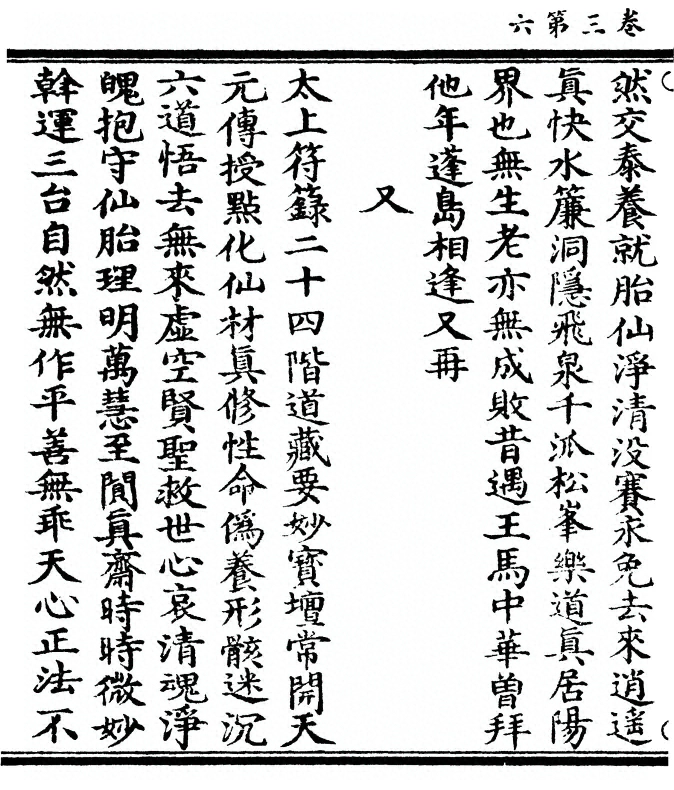 卷三第六
然交泰養就胎仙淨清没賽永免去來逍遥
眞快水簾洞隱飛泉千派松峯樂道眞居陽
界也無生老亦無成敗昔遇王馬中華曾拜
他年蓬島相逢又再
又
太上符籙二十四階道藏要妙寳壇常開天
元傳授點化仙材眞修性命僞養形骸迷沉
六道悟去無來虚空賢聖救世心哀清魂淨
魄抱守仙胎理明萬慧至閴眞齋時時微妙
斡運三台自然無作平善無乖天心正法不